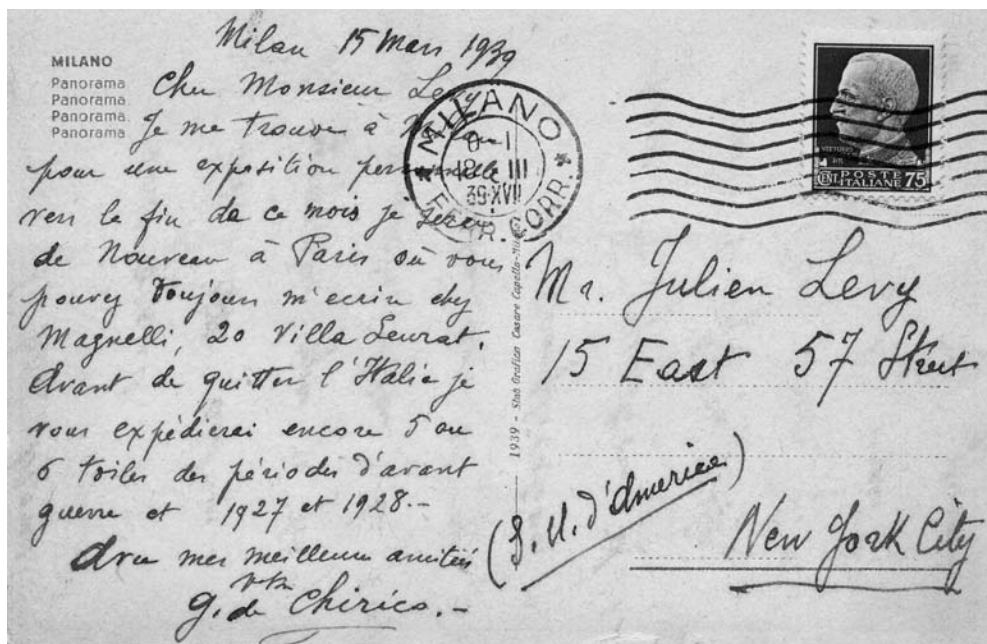 Milan 15 Mars 1939
MILANO
Panorama
Panorama.
Panorama.
Panorama.
Cher Monsieur Levy
Je me trouve à Milan
pour une exposition personnelle
vers la fin de ce mois je serai
de nouveau à Paris où vous
pouvez toujours m'ecrire chez
Magnelli, 20 Villa Seurat.
Avant de quitter l'Italie je
vous expédierai encore 5 ou
6 toiles des périodes d'avant
guerre et 1927 et 1928.-
Avec mes meilleures amitiés
G. de Chirico.-
MILANO
18 III
39·XVII
CORR.
POSTE
ITALIANE
CENT 75
1939 - Stab Grafico Cesare Capello-Milano
Mr. Julien Levy
15 East 57 Street
(S. U. d'America)
New York City